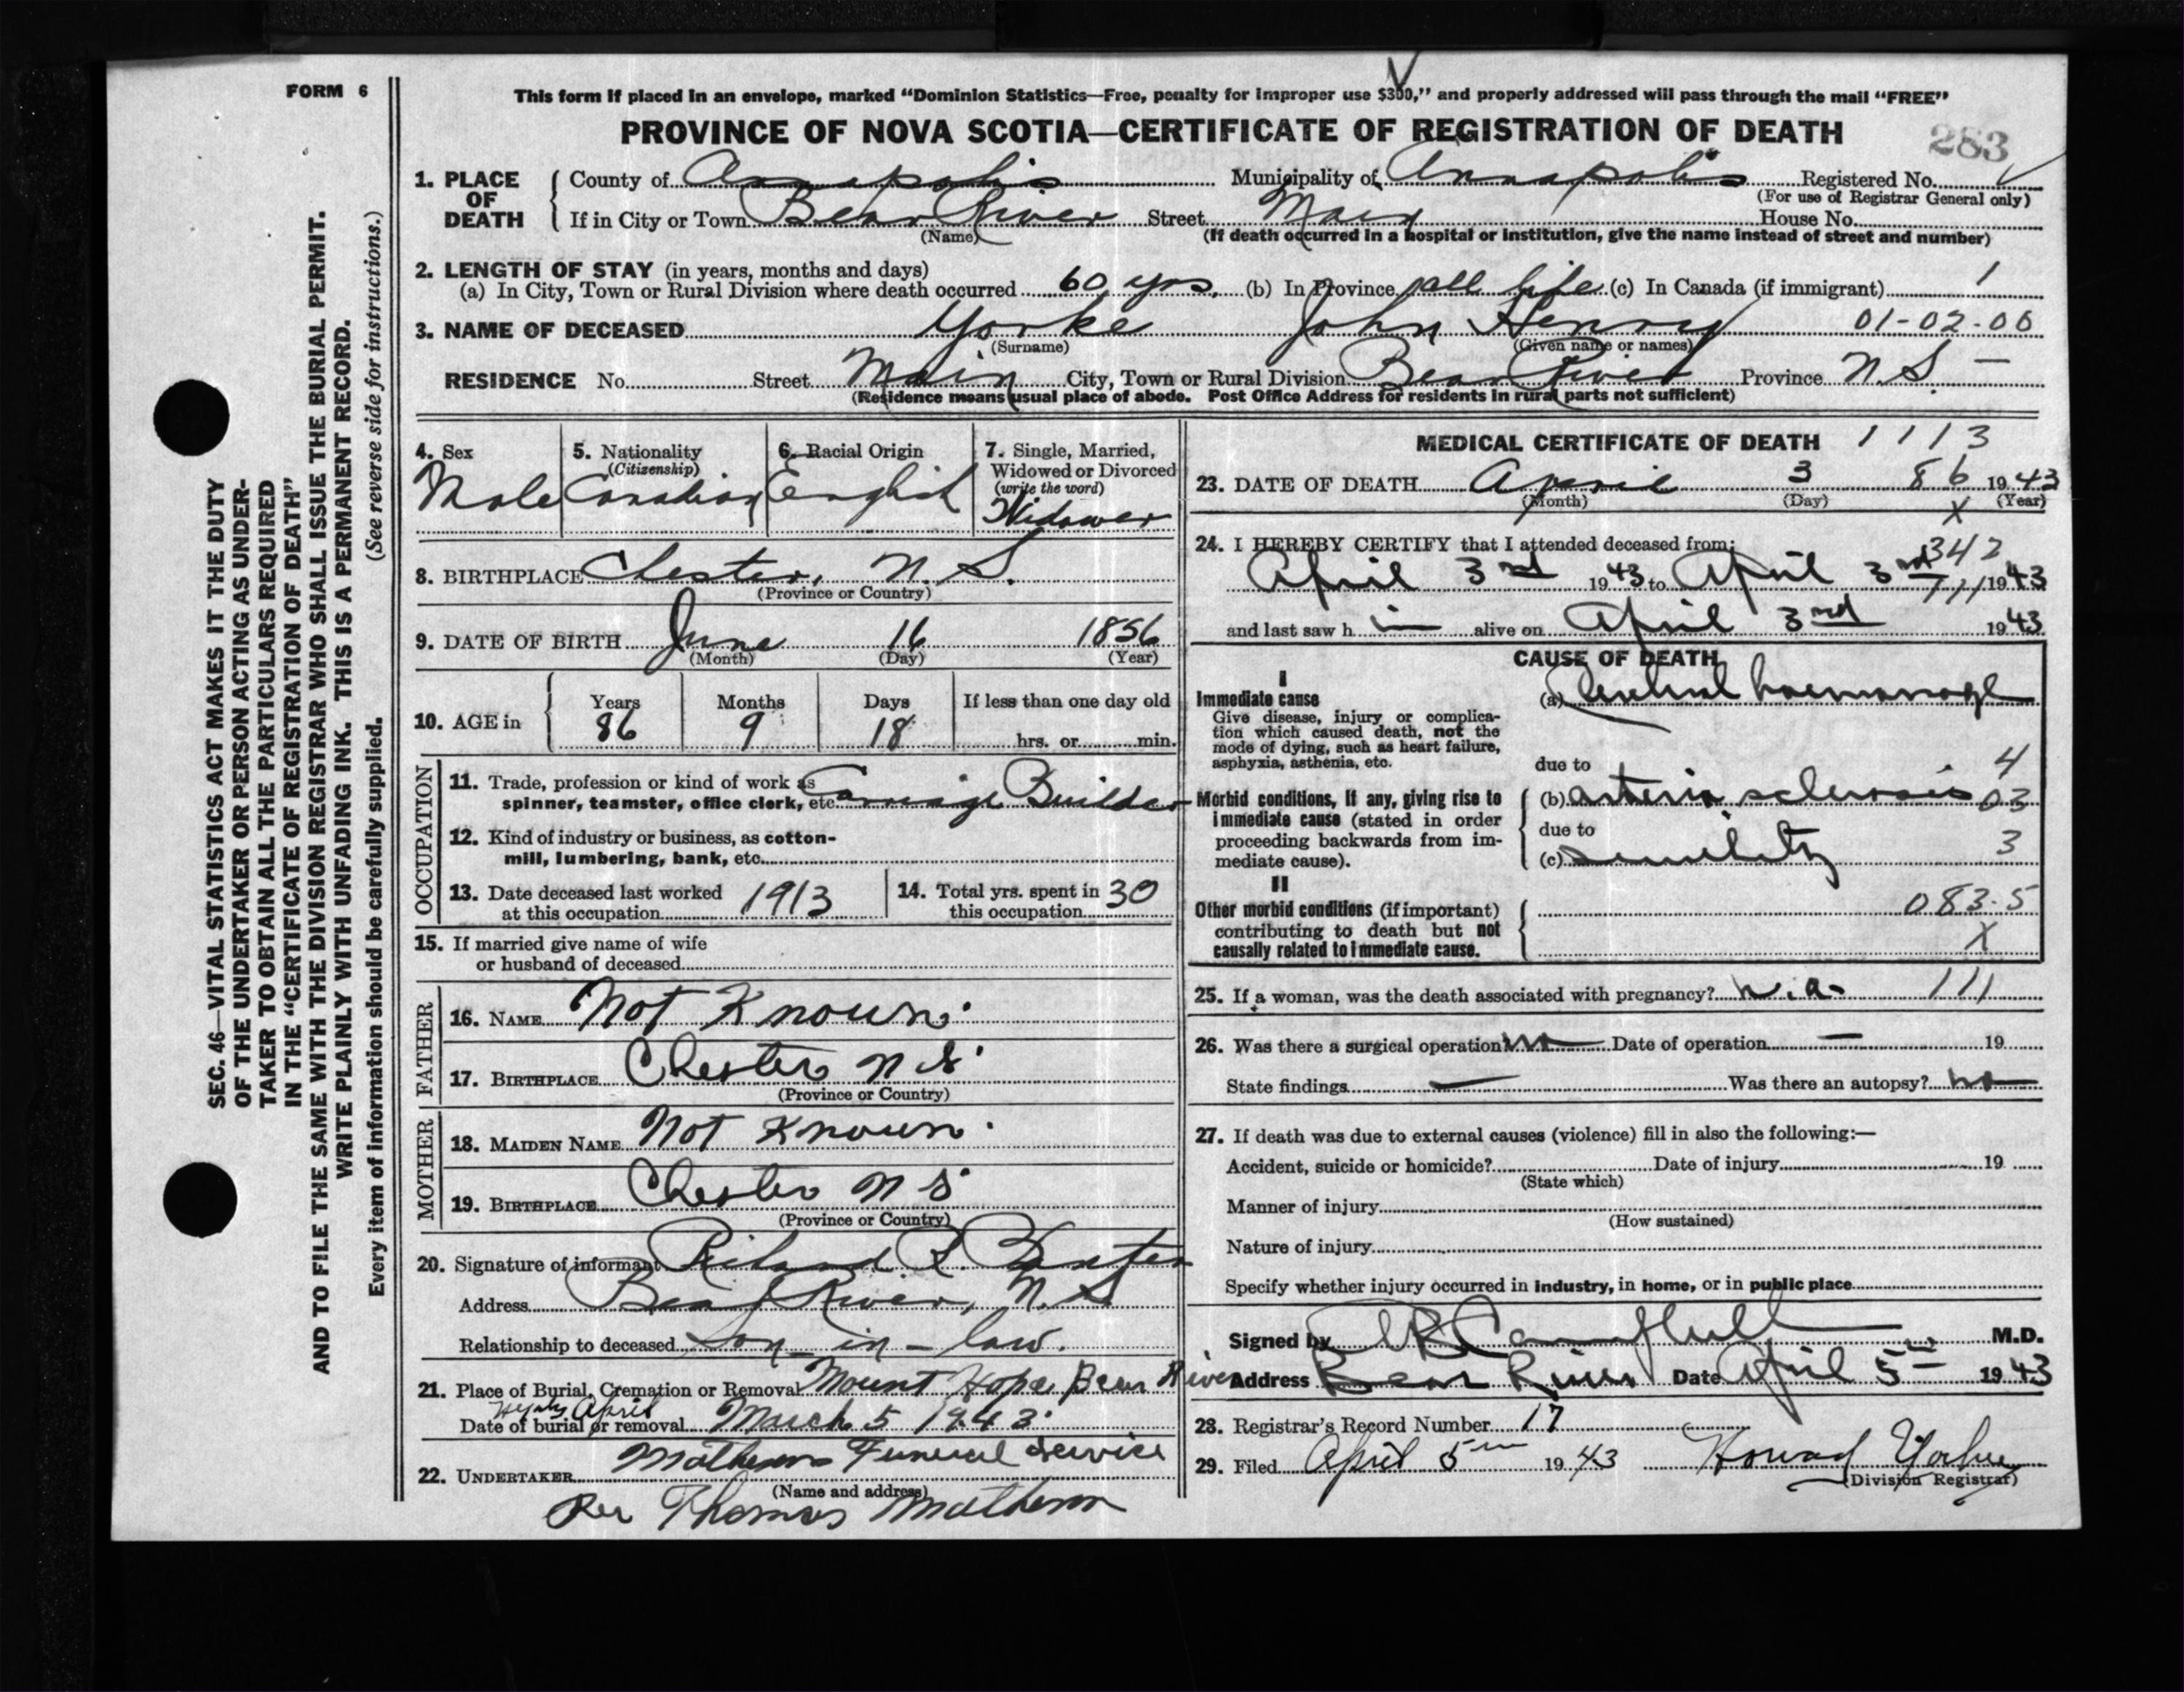 FORM 6
This form if placed in an envelope, marked “Dominion Statistics—Free, penalty for improper use $300,” and properly addressed will pass through the mail “FREE”
PROVINCE OF NOVA SCOTIA—CERTIFICATE OF REGISTRATION OF DEATH
283
1. PLACE OF DEATH { County of Annapolis Municipality of Annapolis Registered No.
(For use of Registrar General only)
If in City or Town Bear River Street Main House No.
(Name) (If death occurred in a hospital or institution, give the name instead of street and number)
2. LENGTH OF STAY (in years, months and days)
(a) In City, Town or Rural Division where death occurred 60 yrs. (b) In Province all life (c) In Canada (if immigrant) 1
3. NAME OF DECEASED Yorke John Henry 01-02-00
(Surname) (Given name or names)
RESIDENCE No. Street Main City, Town or Rural Division Bear River Province N.S. —
(Residence means usual place of abode. Post Office Address for residents in rural parts not sufficient)
4. Sex Male
5. Nationality (Citizenship) Canadian
6. Racial Origin English
7. Single, Married, Widowed or Divorced (write the word) Widower
8. BIRTHPLACE Chester, N.S.
(Province or Country)
9. DATE OF BIRTH June 16 1856
(Month) (Day) (Year)
10. AGE in { Years 86 Months 9 Days 18 If less than one day old
hrs. or min.
OCCUPATION
11. Trade, profession or kind of work as
spinner, teamster, office clerk, etc. Carriage Builder
12. Kind of industry or business, as cotton-
mill, lumbering, bank, etc.
13. Date deceased last worked
at this occupation 1913
14. Total yrs. spent in
this occupation 30
15. If married give name of wife
or husband of deceased
FATHER
16. NAME Not Known
17. BIRTHPLACE Chester N S
(Province or Country)
MOTHER
18. MAIDEN NAME Not Known
19. BIRTHPLACE Chester N S
(Province or Country)
20. Signature of informant
Address Bear River, N.S.
Relationship to deceased Son-in-law.
21. Place of Burial, Cremation or Removal Mount Hope Bear River
April
Date of burial or removal March 5 1943
22. UNDERTAKER Mathesons Funeral Service
(Name and address)
Per Thomas Matheson
MEDICAL CERTIFICATE OF DEATH 1113
23. DATE OF DEATH April 3 86 1943
(Month) (Day) (Year)
X
24. I HEREBY CERTIFY that I attended deceased from:
342
April 3rd 1943 to April 3rd 1943
111
and last saw h im alive on April 3rd 1943
CAUSE OF DEATH
I
Immediate cause
Give disease, injury or complica-
tion which caused death, not the
mode of dying, such as heart failure,
asphyxia, asthenia, etc.
(a) Cerebral haemorrhage
due to 4
Morbid conditions, if any, giving rise to
immediate cause (stated in order
proceeding backwards from im-
mediate cause).
(b) arterio sclerosis 03
due to
(c) senility 3
II
Other morbid conditions (if important)
contributing to death but not
causally related to immediate cause.
083.5
X
25. If a woman, was the death associated with pregnancy? n.a. 111
26. Was there a surgical operation no Date of operation — 19
State findings — Was there an autopsy? no
27. If death was due to external causes (violence) fill in also the following:—
Accident, suicide or homicide? Date of injury 19
(State which)
Manner of injury
(How sustained)
Nature of injury
Specify whether injury occurred in industry, in home, or in public place
Signed by Campbell M.D.
Address Bear River Date April 5th 1943
28. Registrar's Record Number 17
29. Filed April 5th 1943 Howard
(Division Registrar)
SEC. 46—VITAL STATISTICS ACT MAKES IT THE DUTY
OF THE UNDERTAKER OR PERSON ACTING AS UNDER-
TAKER TO OBTAIN ALL THE PARTICULARS REQUIRED
IN THE “CERTIFICATE OF REGISTRATION OF DEATH”
AND TO FILE THE SAME WITH THE DIVISION REGISTRAR WHO SHALL ISSUE THE BURIAL PERMIT.
WRITE PLAINLY WITH UNFADING INK. THIS IS A PERMANENT RECORD.
Every item of information should be carefully supplied. (See reverse side for instructions.)